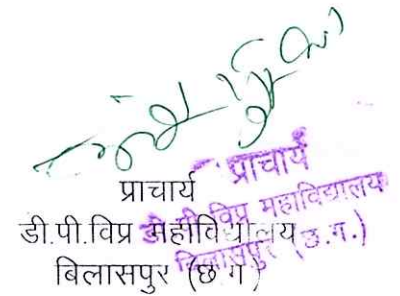 प्राचार्य
डी.पी.विप्र महाविद्यालय
बिलासपुर (छ ग )
प्राचार्य
डी.पी.विप्र महाविद्यालय
बिलासपुर (छ.ग.)